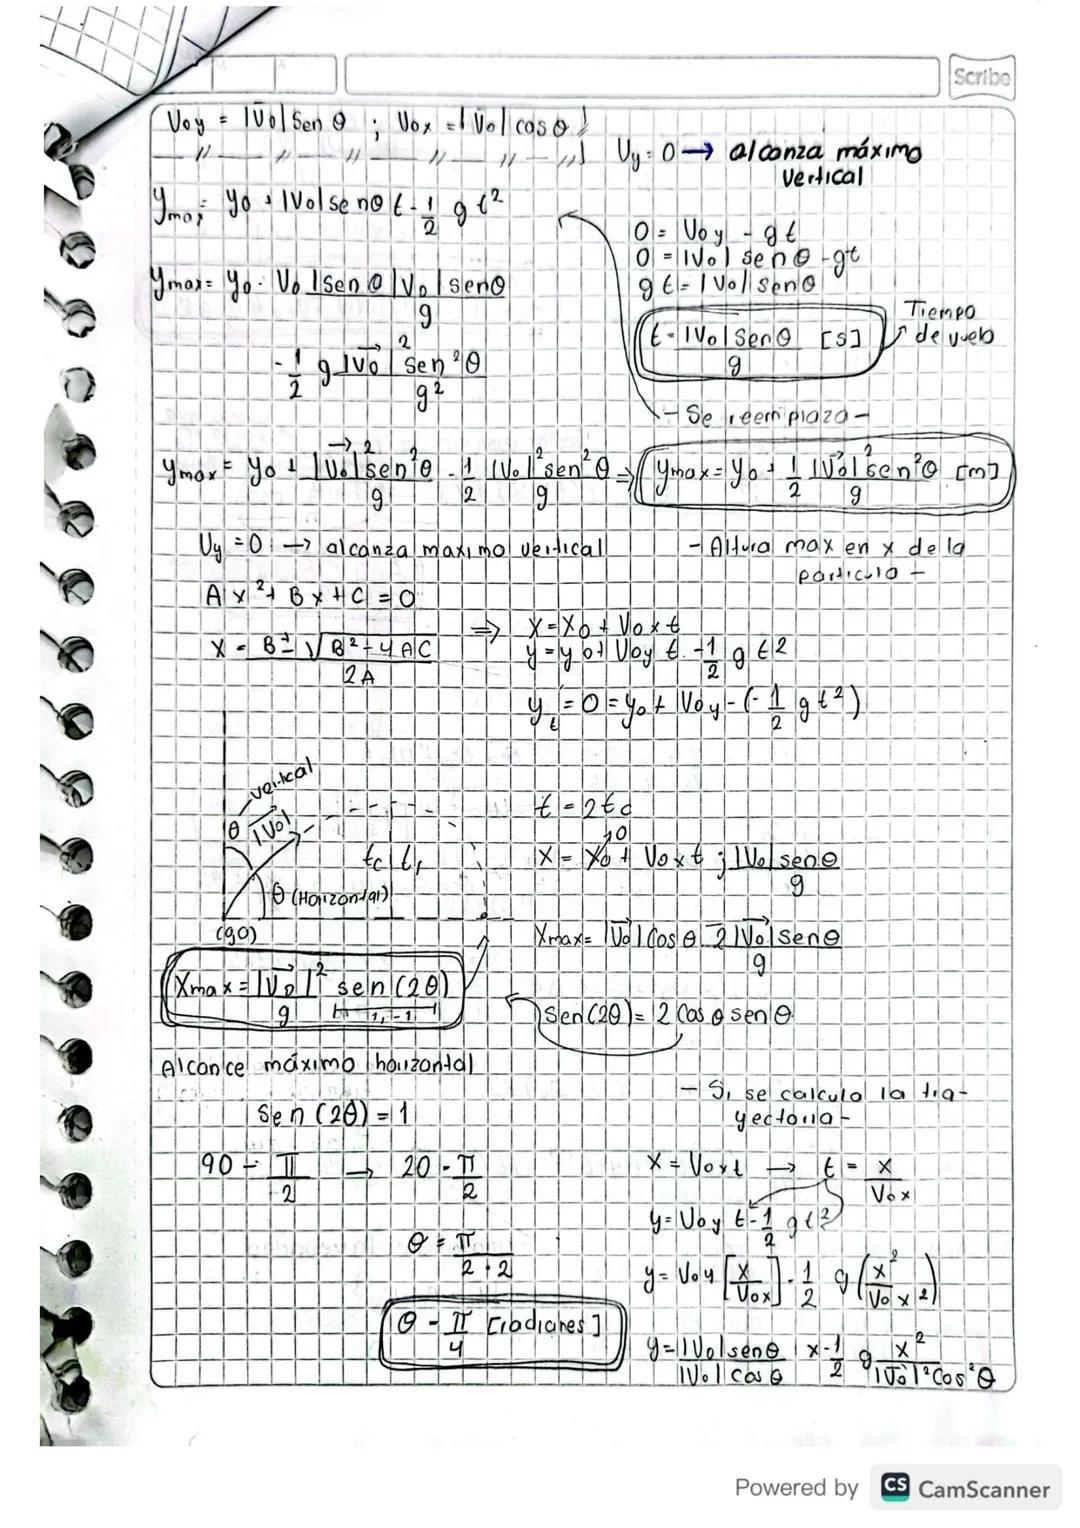 Scribe
Voy = |V̄o| Sen θ ; Vox = |V̄o| cos θ
Vy = 0 → alcanza máximo
vertical
ymax = yo + |Vo| sen θ t - 1/2 g t²
0 = Voy - gt
0 = |Vo| sen θ - gt
gt = |Vo| sen θ
ymax = yo · Vo |sen θ |Vo| sen θ / g
t = |Vo| sen θ / g [s]
Tiempo
de vuelo
- 1/2 g |V⃗o|² sen²θ / g²
- Se reemplaza -
ymax = yo + |V⃗o|² sen²θ / g - 1/2 |Vo|² sen²θ / g ⇒ ymax = yo + 1/2 |V⃗o|² sen²θ / g [m]
Vy = 0 → alcanza maximo vertical
- Altura max en x de la
particula -
Ax² + Bx + C = 0
x = B ± √B² + 4AC / 2A
⇒ x = xo + Vox t
y = yo + Voy t - 1/2 g t²
yt = 0 = yo + |Voy - (-1/2 g t²)
vertical
θ |V⃗o|
tc t,
θ (Horizontal)
(90)
t = 2tc
x = xo + Vox t ; |Vo| sen θ / g
0
Xmax = |V⃗o| cos θ 2 |V⃗o| sen θ / g
Xmax = |V⃗o|² / g sen (2θ)
1, -1
Sen(2θ) = 2 Cos θ sen θ
Alcance máximo horizontal
Sen (2θ) = 1
- Si se calcula la tra-
yectoria -
90 - π/2 → 2θ - π/2
x = Vox t → t = x / Vox
y = Voy t - 1/2 g t²
θ = π / 2·2
y = Voy [x / Vox] - 1/2 g (x² / Vox²)
θ - π/4 [radianes]
y = |Vo| sen θ / |Vo| cos θ x - 1/2 g x² / |V⃗o|² Cos²θ
Powered by CS CamScanner